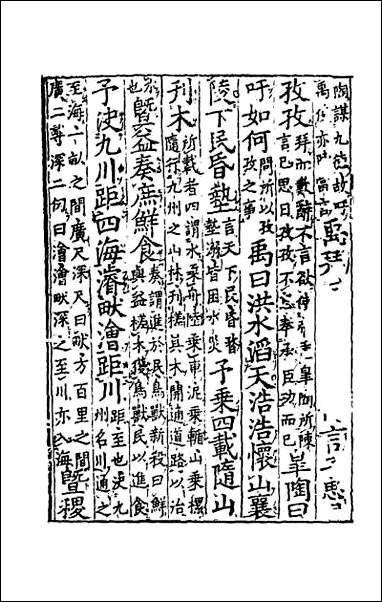 陶謀九德故呼
禹使亦陳當言
禹拜
言予思
孜孜
拜而歎辭不言欲使帝重皐陶所陳
言己思日孜孜不怠奉承臣功而已
皐陶曰
吁如何
問所以孜
孜之事
禹曰洪水滔天浩浩懷山襄
陵下民昏墊
言天下民昏瞀
墊溺皆困水災
予乘四載隨山
刊木
所載者四謂水乘舟陸乘車泥乘輴山乘樏
隨行九州之山林刊槎其木開通道路以治
水也
曁益奏庶鮮食
奏謂進於民鳥獸新殺曰鮮
與益槎木獲鳥獸民以進食
予決九川距四海濬畎澮距川
距至也決九
州名川通之
至海一畝之間廣尺深尺曰畎方百里之間
廣二尋深二仞曰澮澮畎深之至川亦入海
曁稷